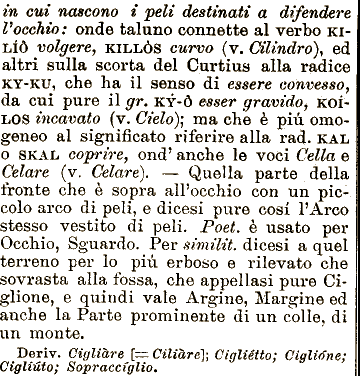 in cui nascono i peli destinati a difendere
l'occhio: onde taluno connette al verbo KI-
LÌÔ volgere, KILLÒS curvo (v. Cilindro), ed
altri sulla scorta del Curtius alla radice
KY-KU, che ha il senso di essere convesso,
da cui pure il gr. KÝ-Ô esser gravido, KOÍ-
LOS incavato (v. Cielo); ma che è piú omo-
geneo al significato riferire alla rad. KAL
o SKAL coprire, ond'anche le voci Cella e
Celare (v. Celare). — Quella parte della
fronte che è sopra all'occhio con un pic-
colo arco di peli, e dicesi pure cosí l'Arco
stesso vestito di peli. Poet. è usato per
Occhio, Sguardo. Per similit. dicesi a quel
terreno per lo piú erboso e rilevato che
sovrasta alla fossa, che appellasi pure Ci-
glione, e quindi vale Argine, Margine ed
anche la Parte prominente di un colle, di
un monte.
Deriv. Cigliàre [= Ciliàre]; Cigliétto; Ciglióne;
Cigliúto; Sopraccíglio.